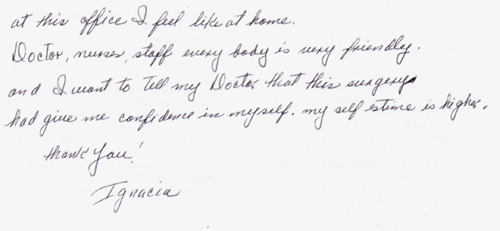 at this office I feel like at home.
Doctor, nurses, staff every body is very friendly.
and I want to Tell my Doctor that this surgery
had give me confidence in myself. my self esteme is higher.
thank You!
Ignacia